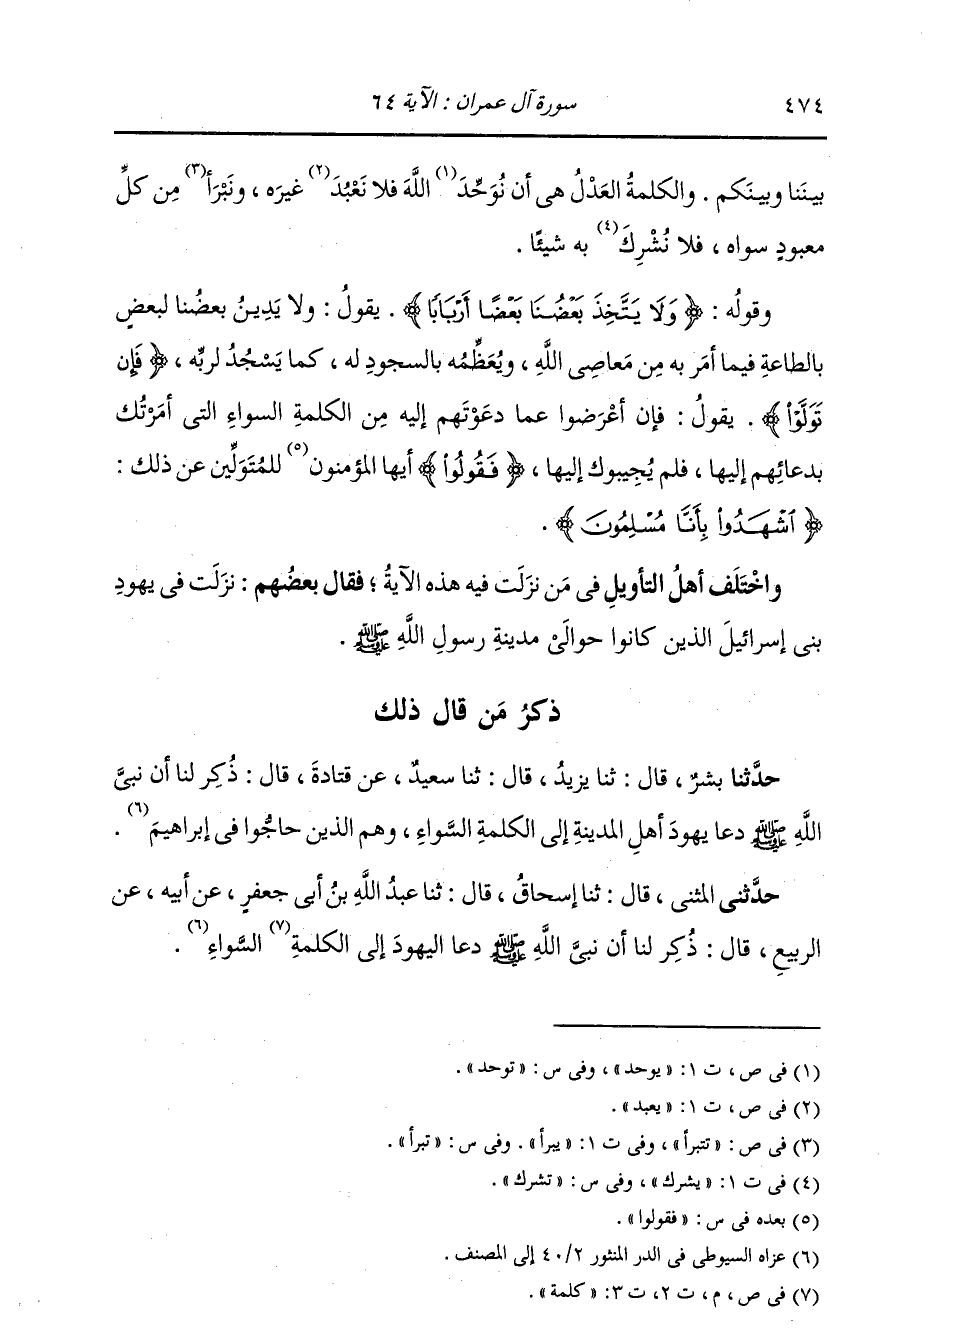 ٤٧٤ سورة آل عمران : الآية ٦٤
بينَنا وبينَكم . والكلمةُ العَدْلُ هى أن نُوَحِّدَ(١) اللَّهَ فلا نَعْبُدَ(٢) غيرَه ، ونَبْرَأَ(٣) مِن كلِّ
معبودٍ سواه ، فلا نُشْرِكَ(٤) به شيئًا .
وقولُه : ﴿ وَلَا يَتَّخِذَ بَعْضُنَا بَعْضًا أَرْبَابًا ﴾ . يقولُ : ولا يَدِينُ بعضُنا لبعضٍ
بالطاعةِ فيما أمَر به مِن مَعاصِى اللَّهِ ، ويُعَظِّمُه بالسجودِ له ، كما يَسْجُدُ لربِّه ، ﴿ فَإِن
تَوَلَّوْا ﴾ . يقولُ : فإن أعْرَضوا عما دعَوْتَهم إليه مِن الكلمةِ السواءِ التى أمَرْتُك
بدعائِهم إليها ، فلم يُجِيبوك إليها ، ﴿ فَقُولُوا ﴾ أيها المؤمنون(٥) للمُتَوَلِّين عن ذلك :
﴿ ٱشْهَدُوا بِأَنَّا مُسْلِمُونَ ﴾ .
واخْتَلَف أهلُ التأويلِ فى مَن نزَلَت فيه هذه الآيةُ ؛ فقال بعضُهم : نزَلَت فى يهودِ
بنى إسرائيلَ الذين كانوا حوالَىْ مدينةِ رسولِ اللَّهِ ﷺ .
ذكرُ مَن قال ذلك
حدَّثنا بشرٌ ، قال : ثنا يزيدُ ، قال : ثنا سعيدٌ ، عن قتادةَ ، قال : ذُكِر لنا أن نبىَّ
اللَّهِ ﷺ دعا يهودَ أهلِ المدينةِ إلى الكلمةِ السَّواءِ ، وهم الذين حاجُّوا فى إبراهيمَ(٦) .
حدَّثنى المثنى ، قال : ثنا إسحاقُ ، قال : ثنا عبدُ اللَّهِ بنُ أبى جعفرٍ ، عن أبيه ، عن
الربيعِ ، قال : ذُكِر لنا أن نبىَّ اللَّهِ ﷺ دعا اليهودَ إلى الكلمةِ(٧) السَّواءِ(٦) .
(١) فى ص ، ت ١ : « يوحد » ، وفى س : « توحد » .
(٢) فى ص ، ت ١ : « يعبد » .
(٣) فى ص : « تتبرأ » ، وفى ت ١ : « يبرأ » . وفى س : « تبرأ » .
(٤) فى ت ١ : « يشرك » ، وفى س : « تشرك » .
(٥) بعده فى س : « فقولوا » .
(٦) عزاه السيوطى فى الدر المنثور ٤٠/٢ إلى المصنف .
(٧) فى ص ، م ، ت ٢ ، ت ٣ : « كلمة » .